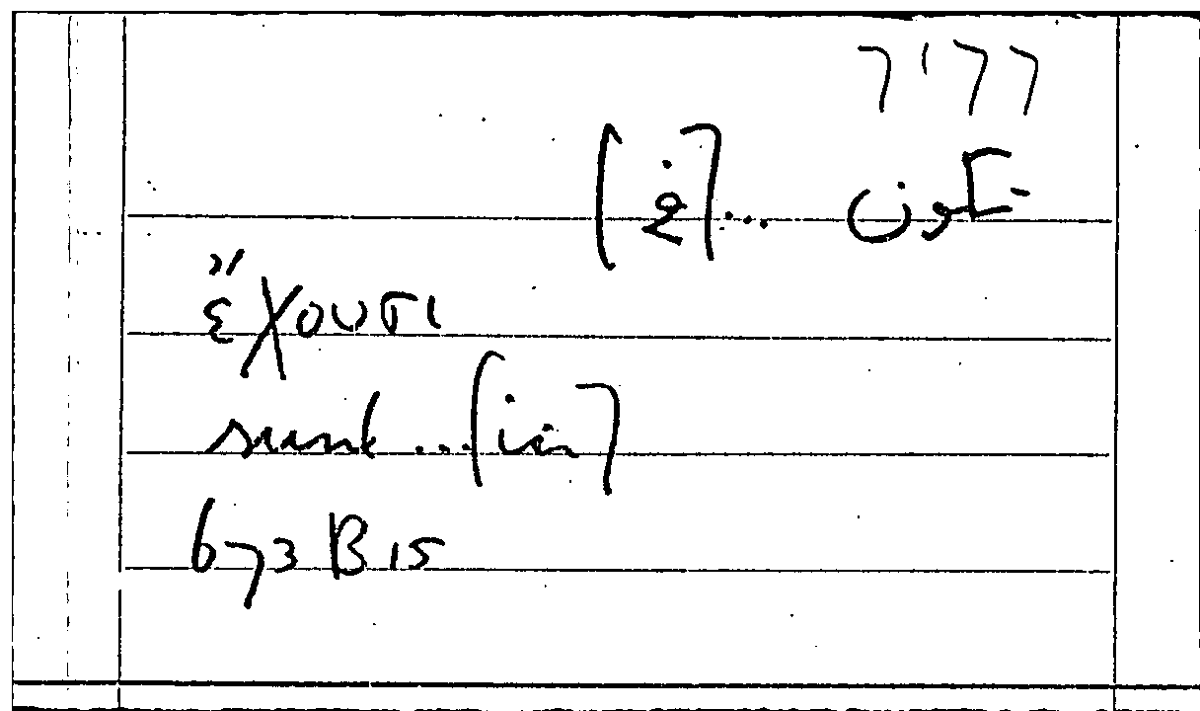 7177
تكون ... [في]
ἔχουσι
sunt ... [in]
673 B 15